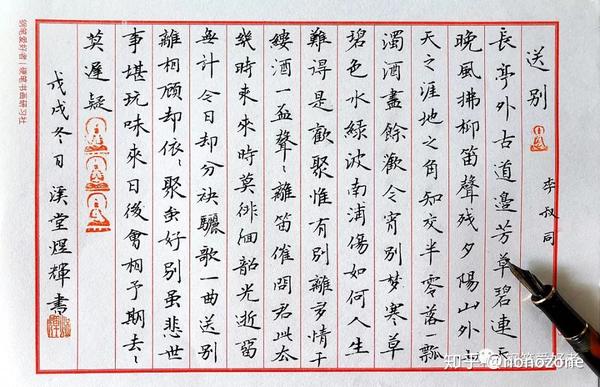 送别
李叔同
長亭外古道邊芳草碧連天
晚風拂柳笛聲残夕陽山外山
天之涯地之角知交半零落瓢
濁酒盡餘歡今宵别梦寒草
碧色水緑波南浦傷如何人生
難得是歡聚惟有别離多情千
縷酒一盃聲〻離笛催問君此去
幾時來來時莫徘徊韶光逝留
無計今日却分袂驪歌一曲送别
離相顾却依〻聚虽好别虽悲世
事堪玩味來日後會相予期去〻
莫遲疑
戊戌冬日溪堂煜輝書
钢笔爱好者|硬笔书画研习社
知乎 @nonozone